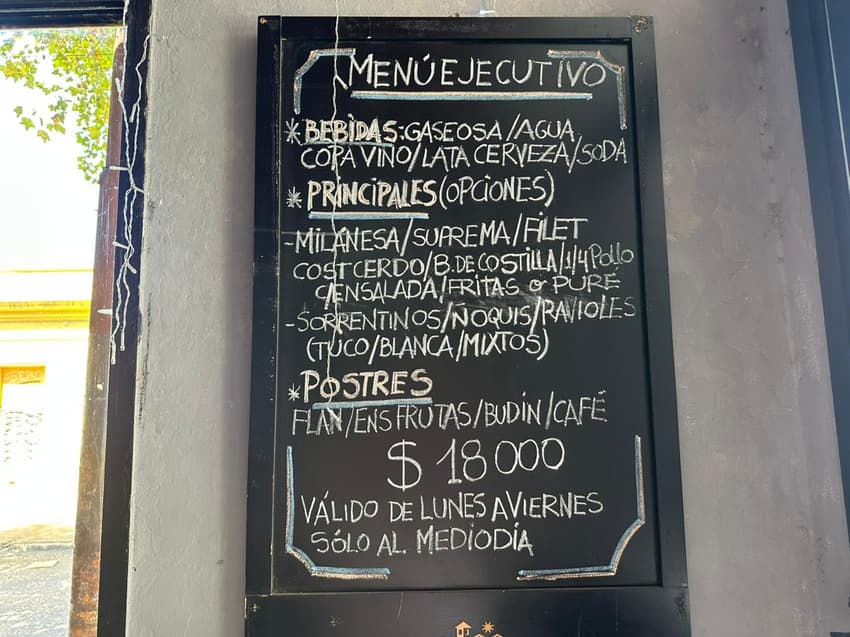 MENÚ EJECUTIVO
* BEBIDAS: GASEOSA/AGUA
COPA VINO/LATA CERVEZA/SODA
* PRINCIPALES (OPCIONES)
- MILANESA/SUPREMA/FILET
COST CERDO/B. DE COSTILLA/1/4 POLLO
C/ENSALADA/FRITAS o PURÉ
- SORRENTINOS/ÑOQUIS/RAVIOLES
(TUCO/BLANCA/MIXTOS)
* POSTRES
FLAN/ENS FRUTAS/BUDIN/CAFÉ
$ 18000
VÁLIDO DE LUNES A VIERNES
SÓLO AL MEDIODÍA